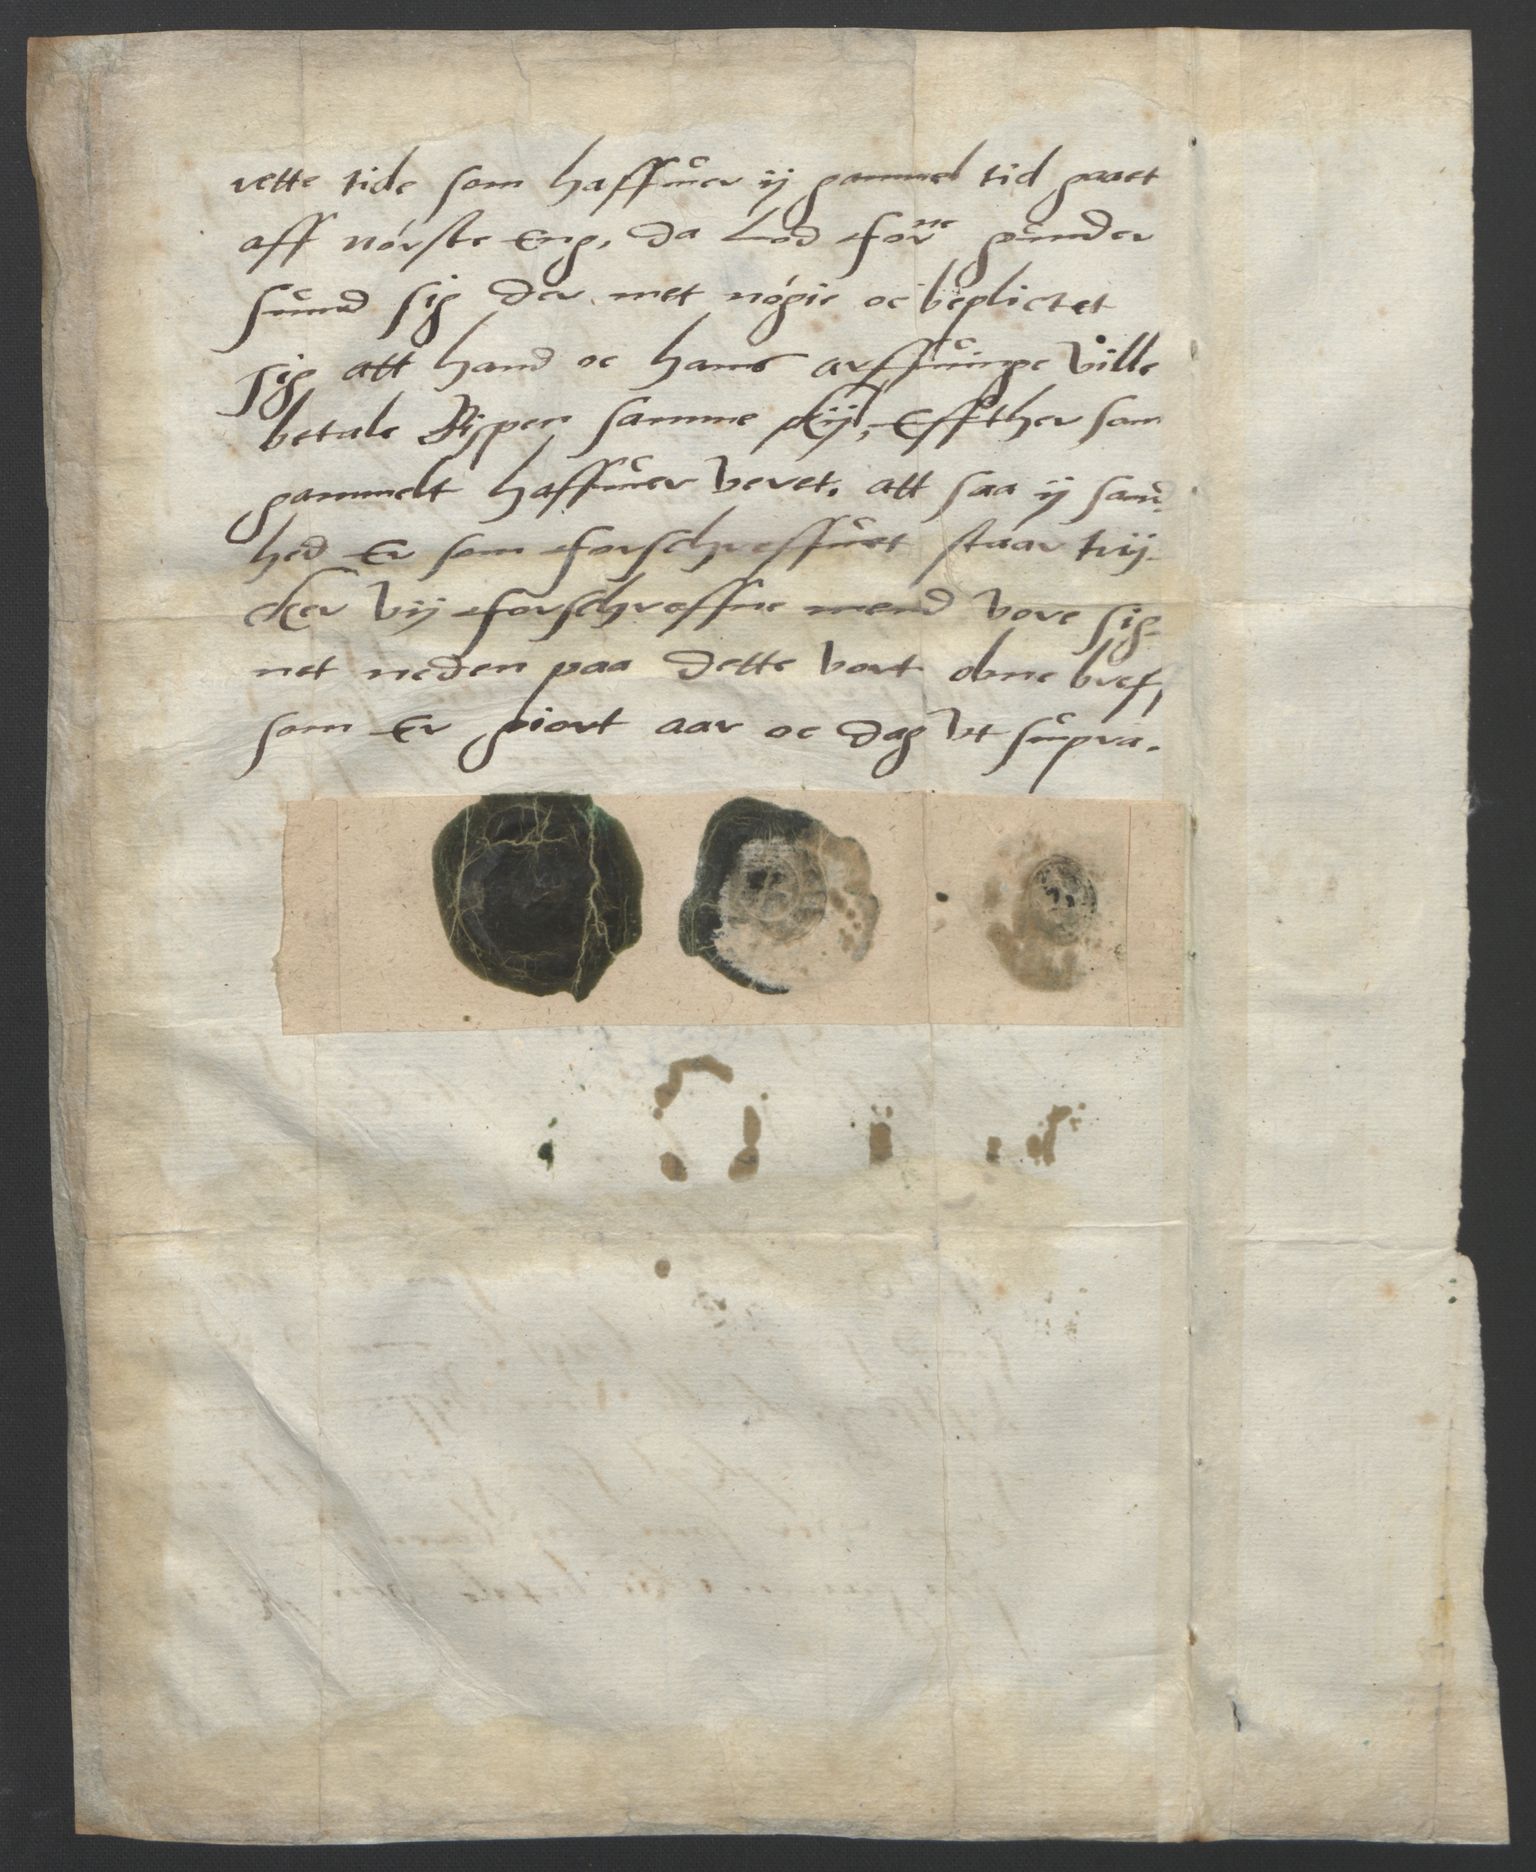 rette tide som haffuer ij gammel tid gaaet
aff nørste Eng, da Lod forne gunder
sund sig der met nøgie oc beplictet
sig att hand oc hans arffuinge ville
betale Bispen samme skijl, Effther som
gammelt haffuer veret, att saa ij sand
hed Er som forschreffuet staar trij-
cker vij forschreffne mend vore sig-
net neden paa dette vort obne bref,
som Er giort aar oc dag vt supra.